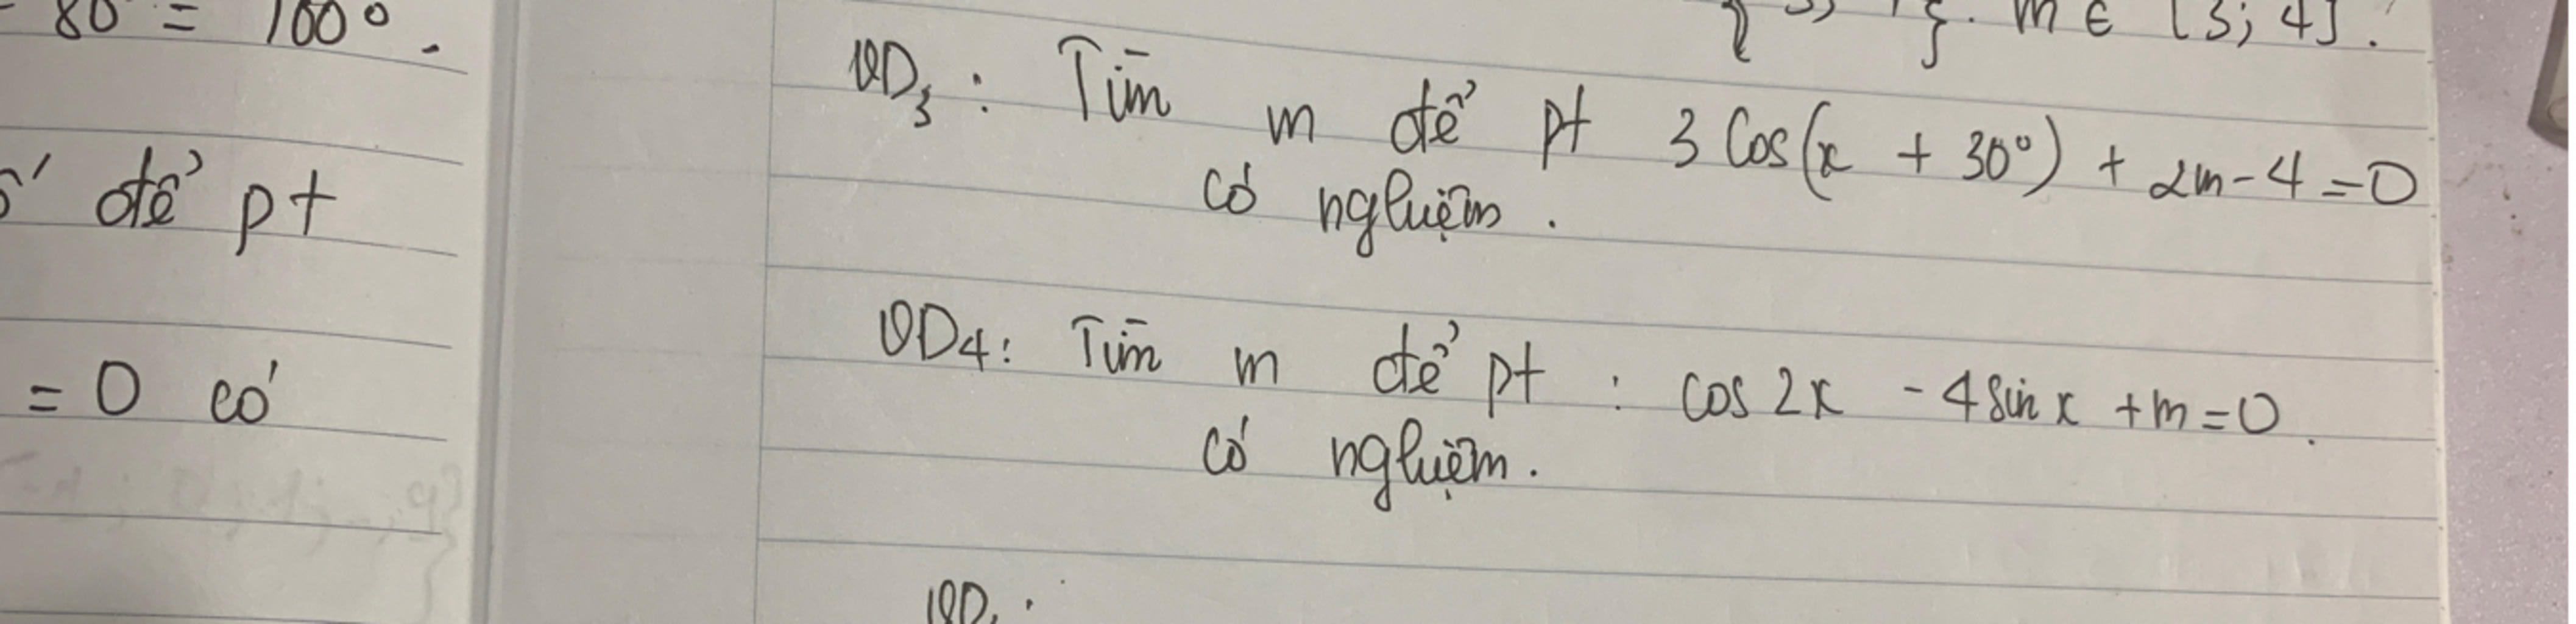 80 = 100°.
để pt
= 0 có
m ∈ [3; 4].
VD3: Tìm m để pt 3 Cos(x + 30°) + 2m - 4 = 0
có nghiệm.
VD4: Tìm m để pt : cos 2x - 4 sin x + m = 0.
có nghiệm.